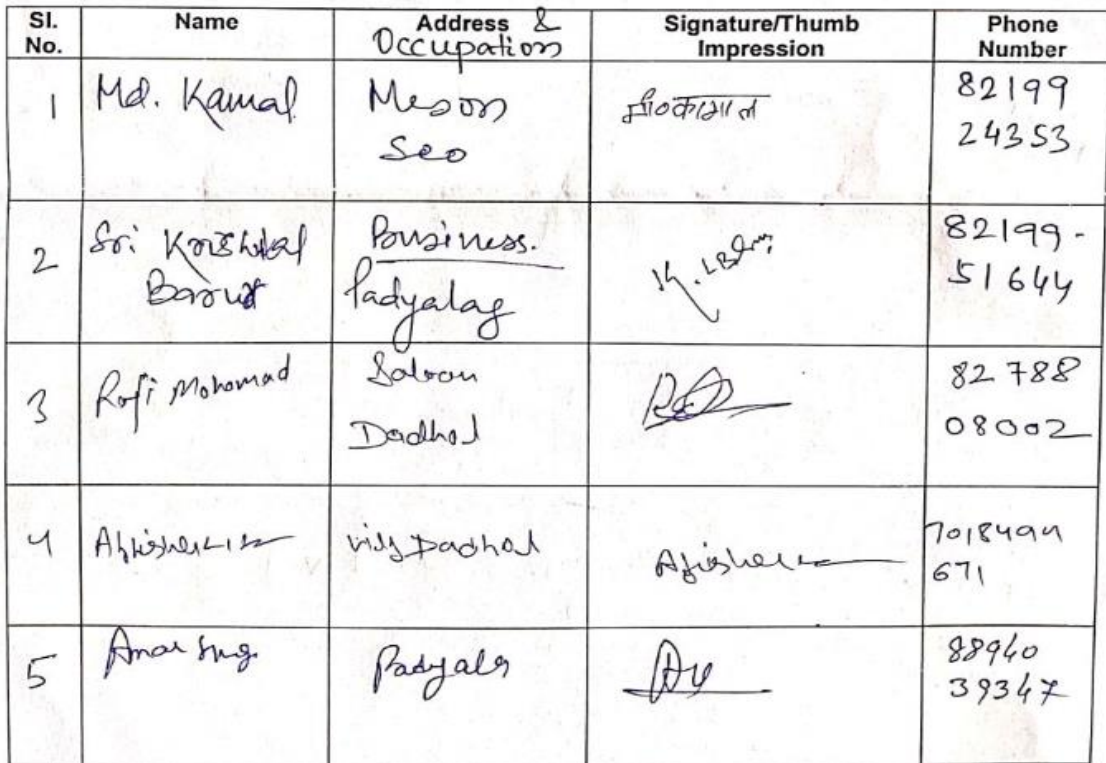 Sl. No. Name Address & Occupation Signature/Thumb Impression Phone Number
1 Md. Kamal Meson Seo मो०कामाल 82199 24353
2 Sri Krishnlal Barua Bousiness. Padyalag K. L B 82199- 51644
3 Rafi Mohomad Saloon Dadhol 82788 08002
4 Abhishek vill Dadhol Abhishek 7018494 671
5 Amar Sing Padyalg 88940 39347